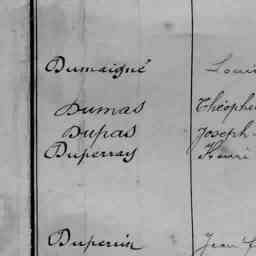 Dumaigné Louis
Dumas Théophile
Dupas Joseph
Duperray Henri
Duperrin Jean